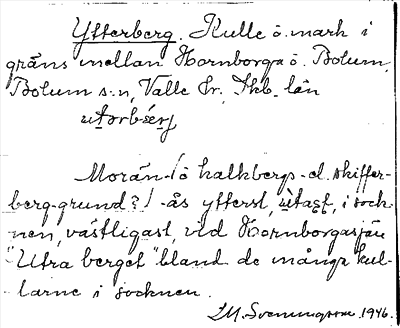 Ytterberg. Kulle ö. mark i
gräns mellan Hornborga ö. Bolum,
Bolum s:n, Valle hr., Skb. län
Morän- (ö kalkbergs- el. skiffer-
berg-grund?) -ås ytterst, i sock-
nen, västligast, vid Hornborgasjön
"Utra berget" bland de många kul-
larne i socknen.
1946.